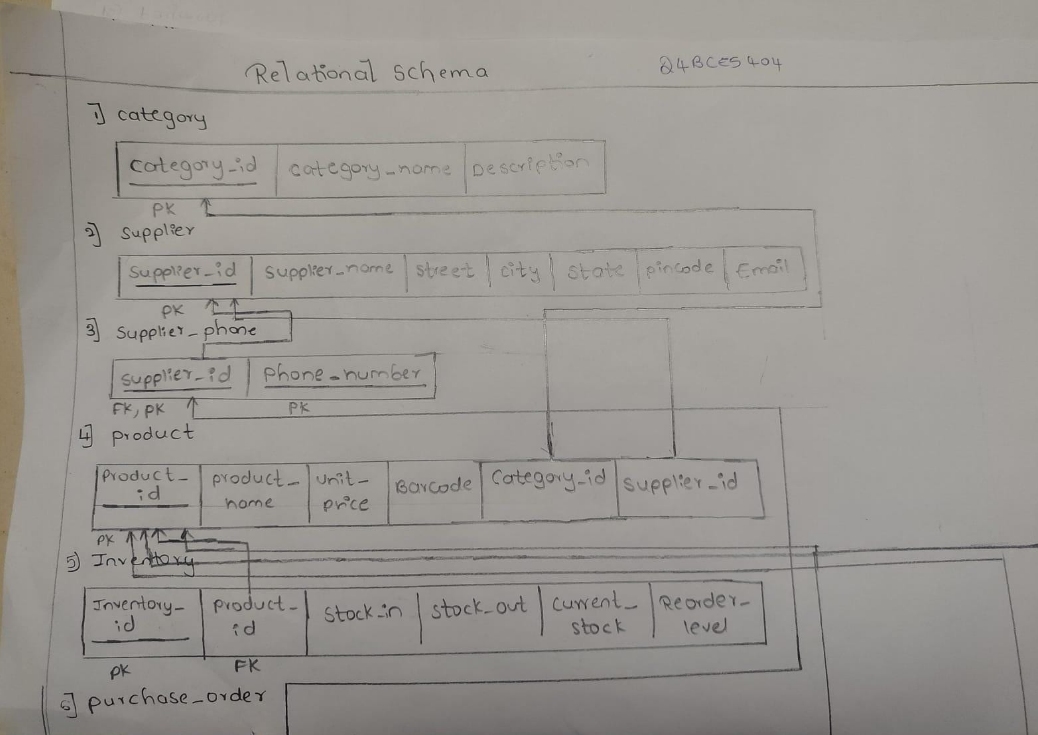 Relational Schema 24BCE5404
1] category
category_id category_name Description
PK
2] Supplier
Supplier_id Supplier_name Street City State pincode Email
PK
3] Supplier_phone
Supplier_id Phone_number
FK, PK PK
4] product
Product_id product_name unit_price Barcode Category_id Supplier_id
PK
5) Inventory
Inventory_id product_id Stock_in stock_out current_stock Reorder_level
PK FK
6] purchase_order